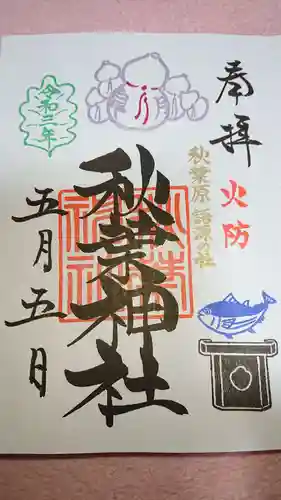 奉拝
火防
秋葉原 語源の社
秋葉神社
秋葉
神社
令和三年
五月五日